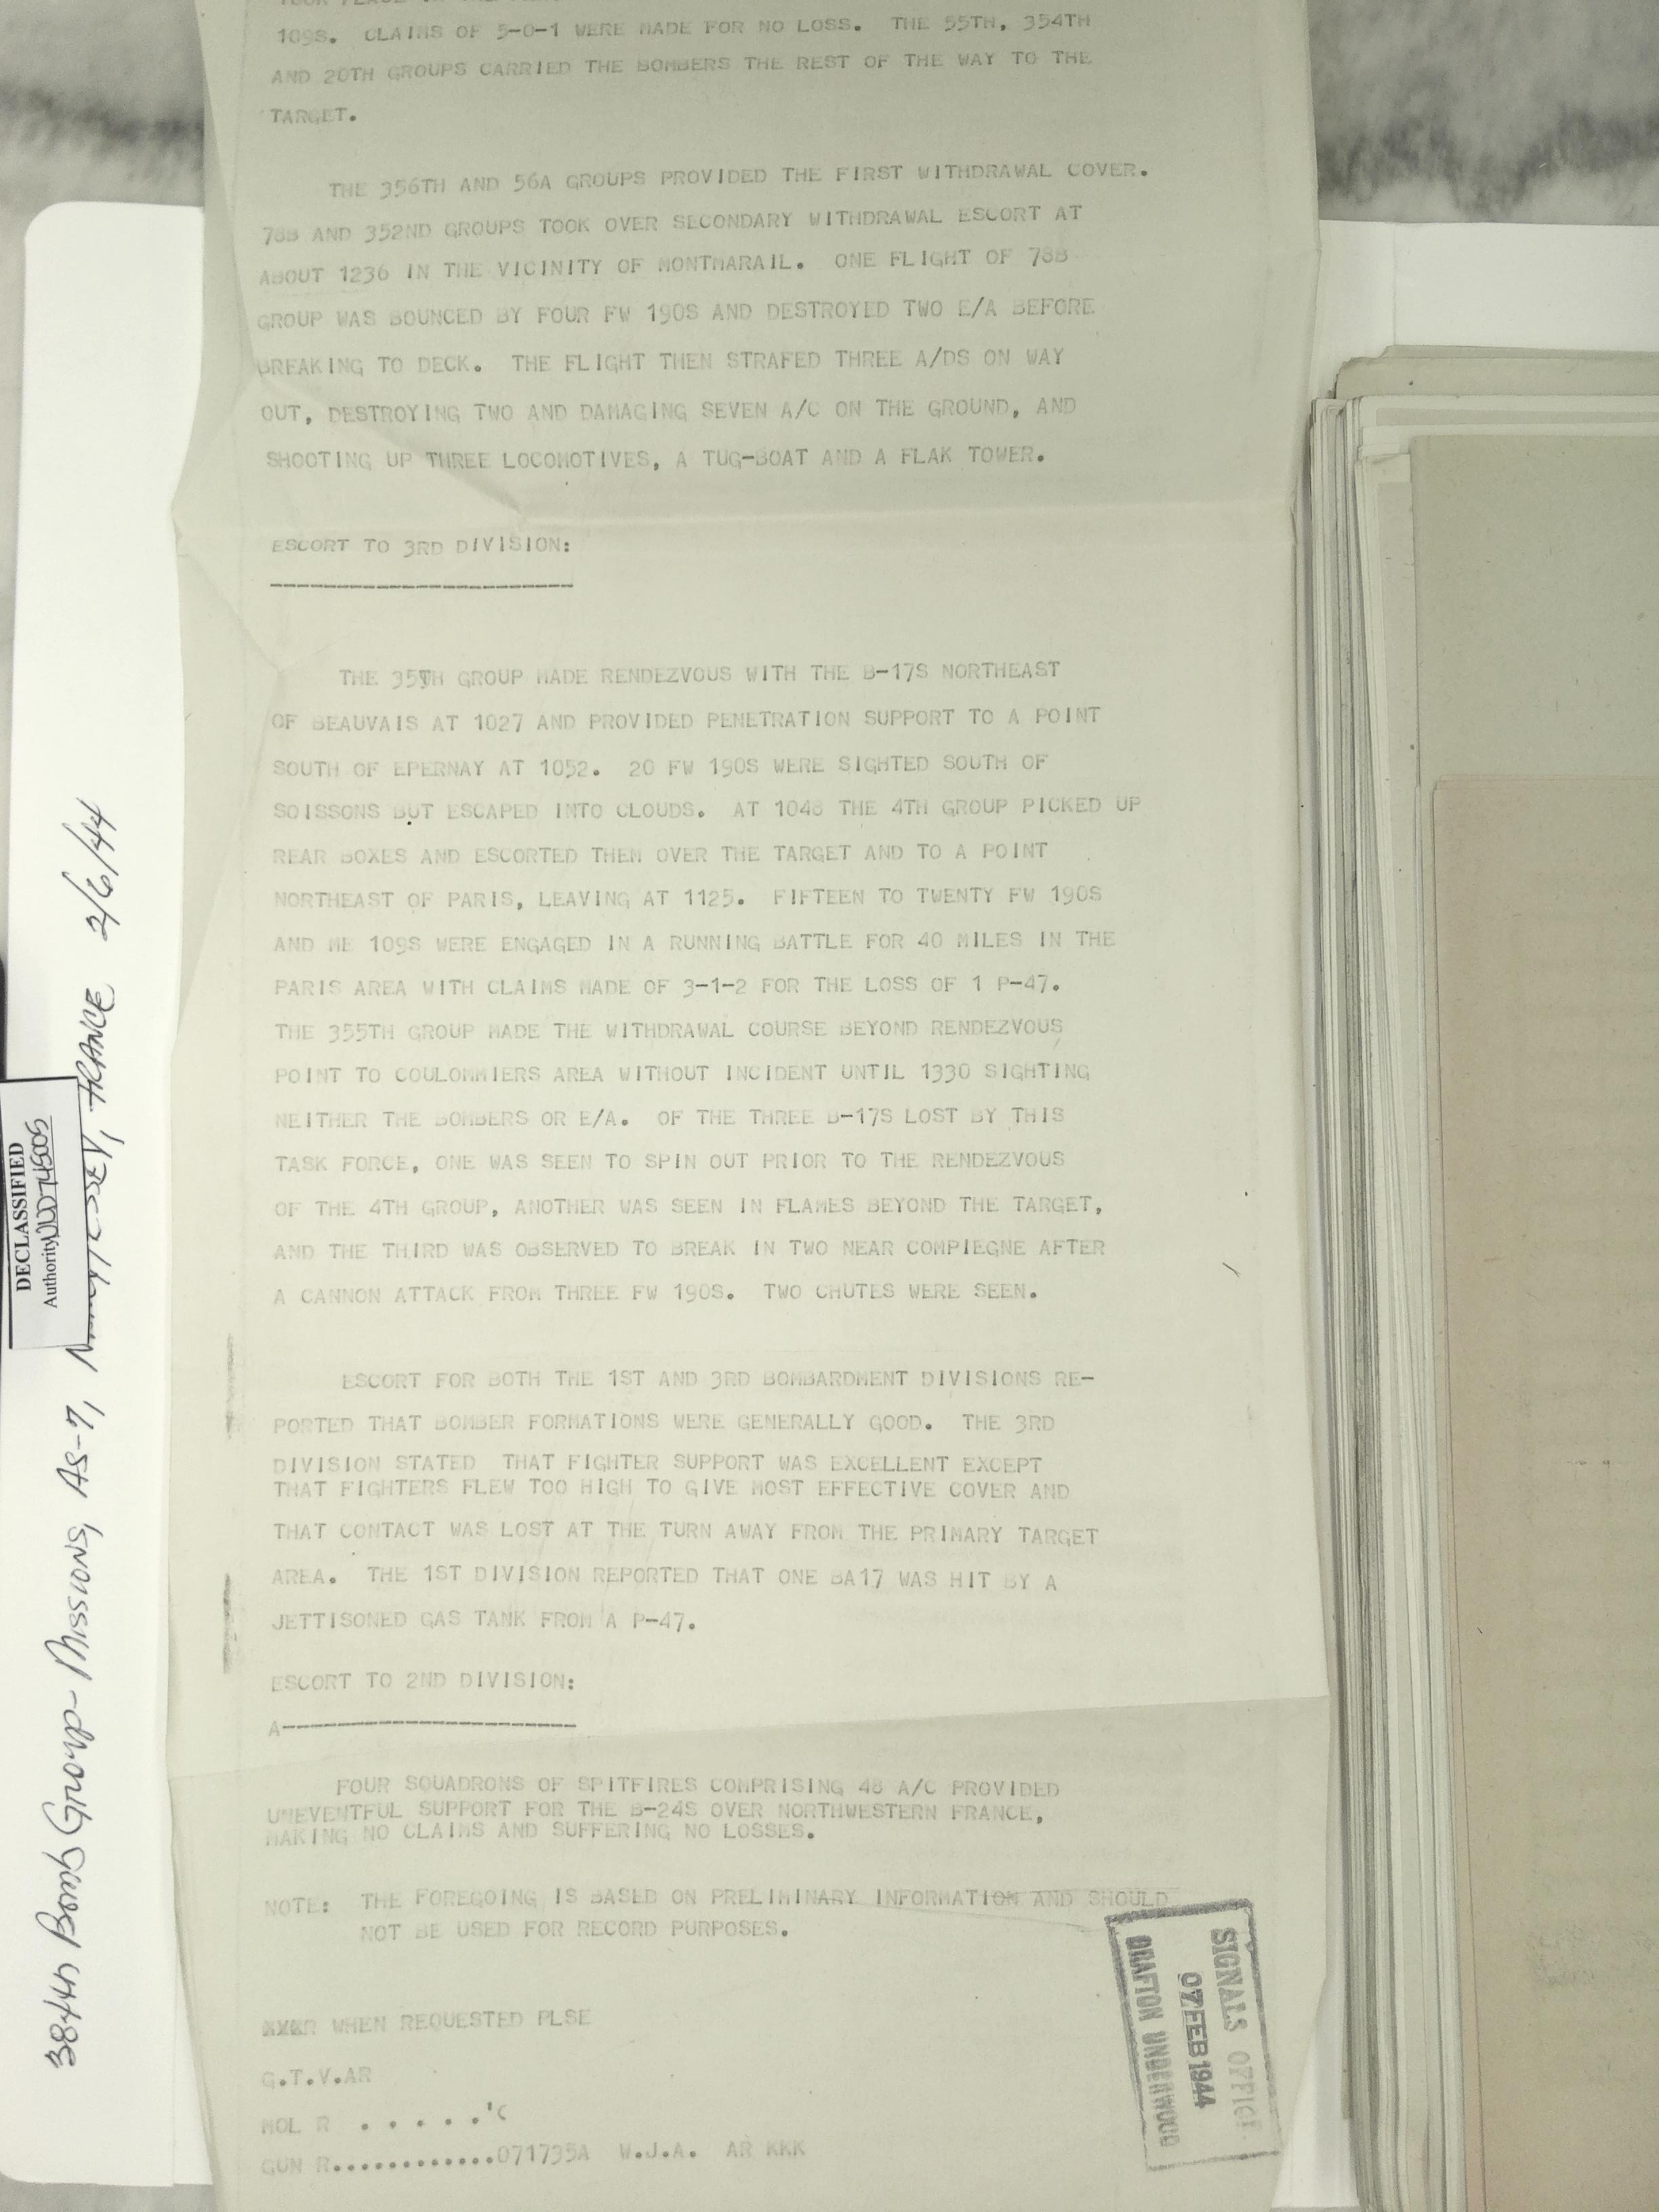 109S. CLAIMS OF 5-0-1 WERE MADE FOR NO LOSS. THE 55TH, 354TH
AND 20TH GROUPS CARRIED THE BOMBERS THE REST OF THE WAY TO THE
TARGET.
THE 356TH AND 56A GROUPS PROVIDED THE FIRST WITHDRAWAL COVER.
78B AND 352ND GROUPS TOOK OVER SECONDARY WITHDRAWAL ESCORT AT
ABOUT 1236 IN THE VICINITY OF MONTMARAIL. ONE FLIGHT OF 78B
GROUP WAS BOUNCED BY FOUR FW 190S AND DESTROYED TWO E/A BEFORE
BREAKING TO DECK. THE FLIGHT THEN STRAFED THREE A/DS ON WAY
OUT, DESTROYING TWO AND DAMAGING SEVEN A/C ON THE GROUND, AND
SHOOTING UP THREE LOCOMOTIVES, A TUG-BOAT AND A FLAK TOWER.
ESCORT TO 3RD DIVISION:
-------------------------
THE 359TH GROUP MADE RENDEZVOUS WITH THE B-17S NORTHEAST
OF BEAUVAIS AT 1027 AND PROVIDED PENETRATION SUPPORT TO A POINT
SOUTH OF EPERNAY AT 1052. 20 FW 190S WERE SIGHTED SOUTH OF
SOISSONS BUT ESCAPED INTO CLOUDS. AT 1048 THE 4TH GROUP PICKED UP
REAR BOXES AND ESCORTED THEM OVER THE TARGET AND TO A POINT
NORTHEAST OF PARIS, LEAVING AT 1125. FIFTEEN TO TWENTY FW 190S
AND ME 109S WERE ENGAGED IN A RUNNING BATTLE FOR 40 MILES IN THE
PARIS AREA WITH CLAIMS MADE OF 3-1-2 FOR THE LOSS OF 1 P-47.
THE 355TH GROUP MADE THE WITHDRAWAL COURSE BEYOND RENDEZVOUS
POINT TO COULOMMIERS AREA WITHOUT INCIDENT UNTIL 1330 SIGHTING
NEITHER THE BOMBERS OR E/A. OF THE THREE B-17S LOST BY THIS
TASK FORCE, ONE WAS SEEN TO SPIN OUT PRIOR TO THE RENDEZVOUS
OF THE 4TH GROUP, ANOTHER WAS SEEN IN FLAMES BEYOND THE TARGET,
AND THE THIRD WAS OBSERVED TO BREAK IN TWO NEAR COMPIEGNE AFTER
A CANNON ATTACK FROM THREE FW 190S. TWO CHUTES WERE SEEN.
ESCORT FOR BOTH THE 1ST AND 3RD BOMBARDMENT DIVISIONS RE-
PORTED THAT BOMBER FORMATIONS WERE GENERALLY GOOD. THE 3RD
DIVISION STATED THAT FIGHTER SUPPORT WAS EXCELLENT EXCEPT
THAT FIGHTERS FLEW TOO HIGH TO GIVE MOST EFFECTIVE COVER AND
THAT CONTACT WAS LOST AT THE TURN AWAY FROM THE PRIMARY TARGET
AREA. THE 1ST DIVISION REPORTED THAT ONE BA17 WAS HIT BY A
JETTISONED GAS TANK FROM A P-47.
ESCORT TO 2ND DIVISION:
A------------------------
FOUR SQUADRONS OF SPITFIRES COMPRISING 48 A/C PROVIDED
UNEVENTFUL SUPPORT FOR THE B-24S OVER NORTHWESTERN FRANCE,
MAKING NO CLAIMS AND SUFFERING NO LOSSES.
NOTE: THE FOREGOING IS BASED ON PRELIMINARY INFORMATION AND SHOULD
NOT BE USED FOR RECORD PURPOSES.
WHEN REQUESTED PLSE
G.T.V.AR
MOL R . . . . .'C
GUN R............071735A W.J.A. AR KKK
SIGNALS OFFICE
07 FEB 1944
GRAFTON UNDERWOOD
DECLASSIFIED
Authority NND745005
384th Bomb Group - Missions, AS-7, FRANCE 2/6/44